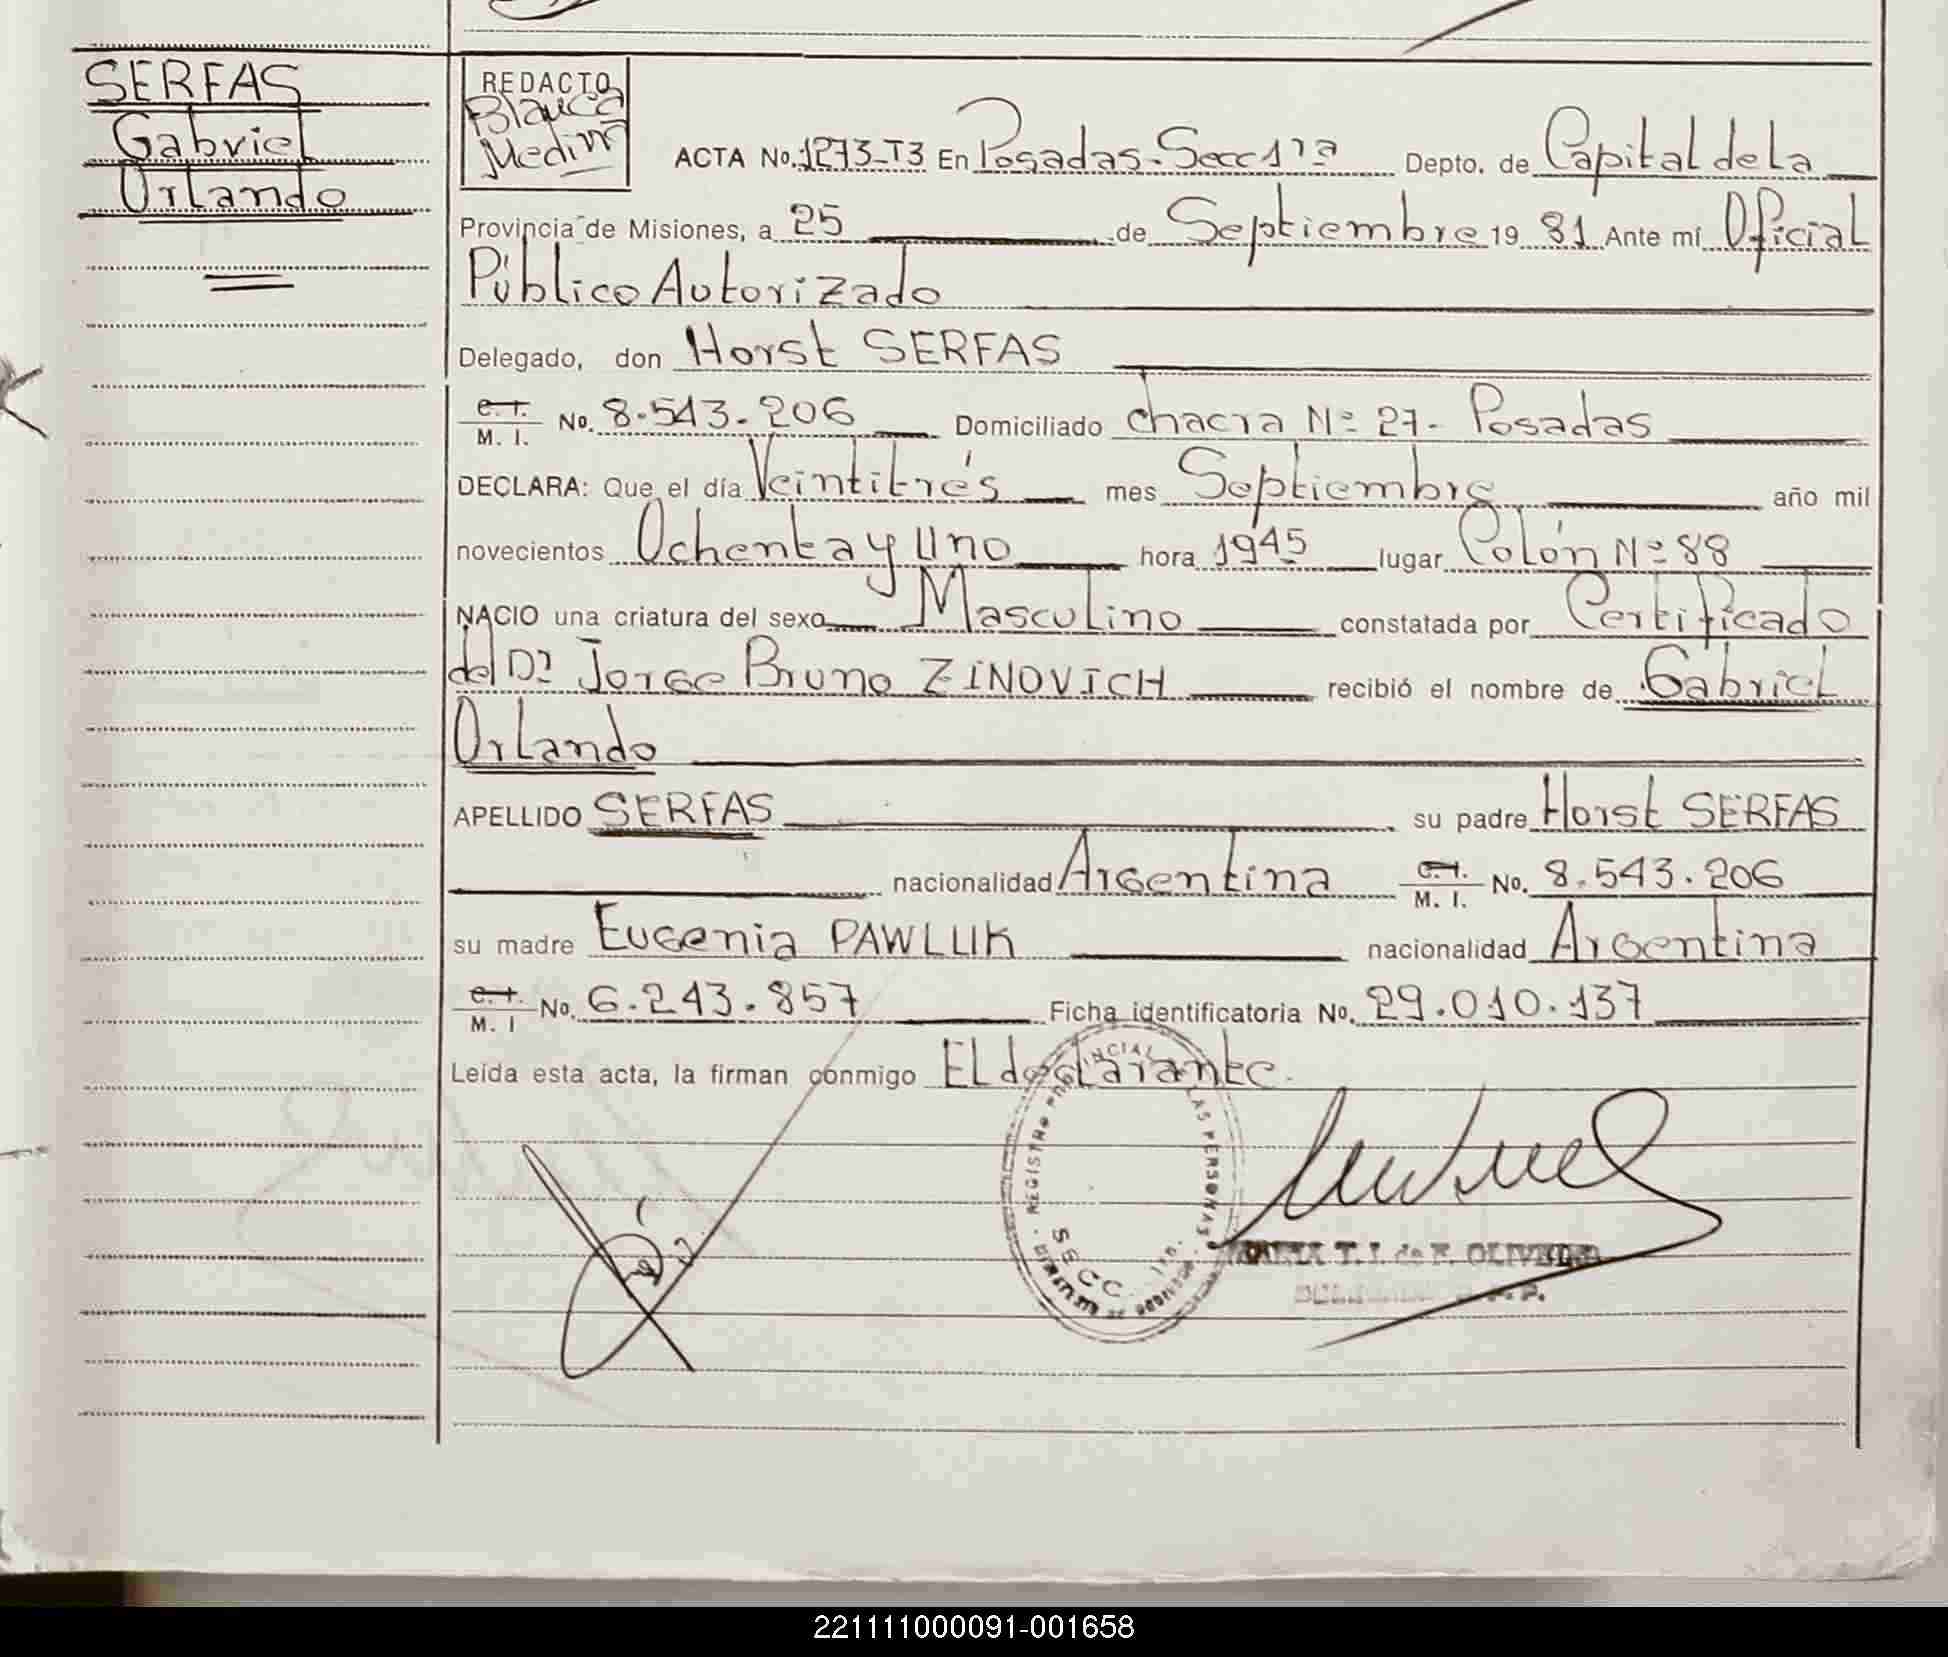 SERFAS
Gabriel
Orlando
REDACTO
Blanca
Medina
ACTA No. 1273-T3 En Posadas-Secc 1ra Depto. de Capital de La
Provincia de Misiones, a 25 de Septiembre 19 81 Ante mí Oficial
Público Autorizado
Delegado, don Horst SERFAS
C.I. M. I. No. 8.543.206 Domiciliado chacra Nº 27- Posadas
DECLARA: Que el día Veintitrés mes Septiembre año mil
novecientos Ochenta y Uno hora 1945 lugar Colón Nº 88
NACIO una criatura del sexo Masculino constatada por Certificado
del Dr Jorge Bruno ZINOVICH recibió el nombre de Gabriel
Orlando
APELLIDO SERFAS su padre Horst SERFAS
nacionalidad Argentina C.I. M. I. No. 8.543.206
su madre Eugenia PAWLUK nacionalidad Argentina
C.I. M. I No. 6.243.857 Ficha identificatoria No. 29.010.137
Leída esta acta, la firman conmigo El declarante.
REGISTRO PROVINCIAL LAS PERSONAS
SECC. 1ra.
T. I. de F. OLIVEIRA
221111000091-001658